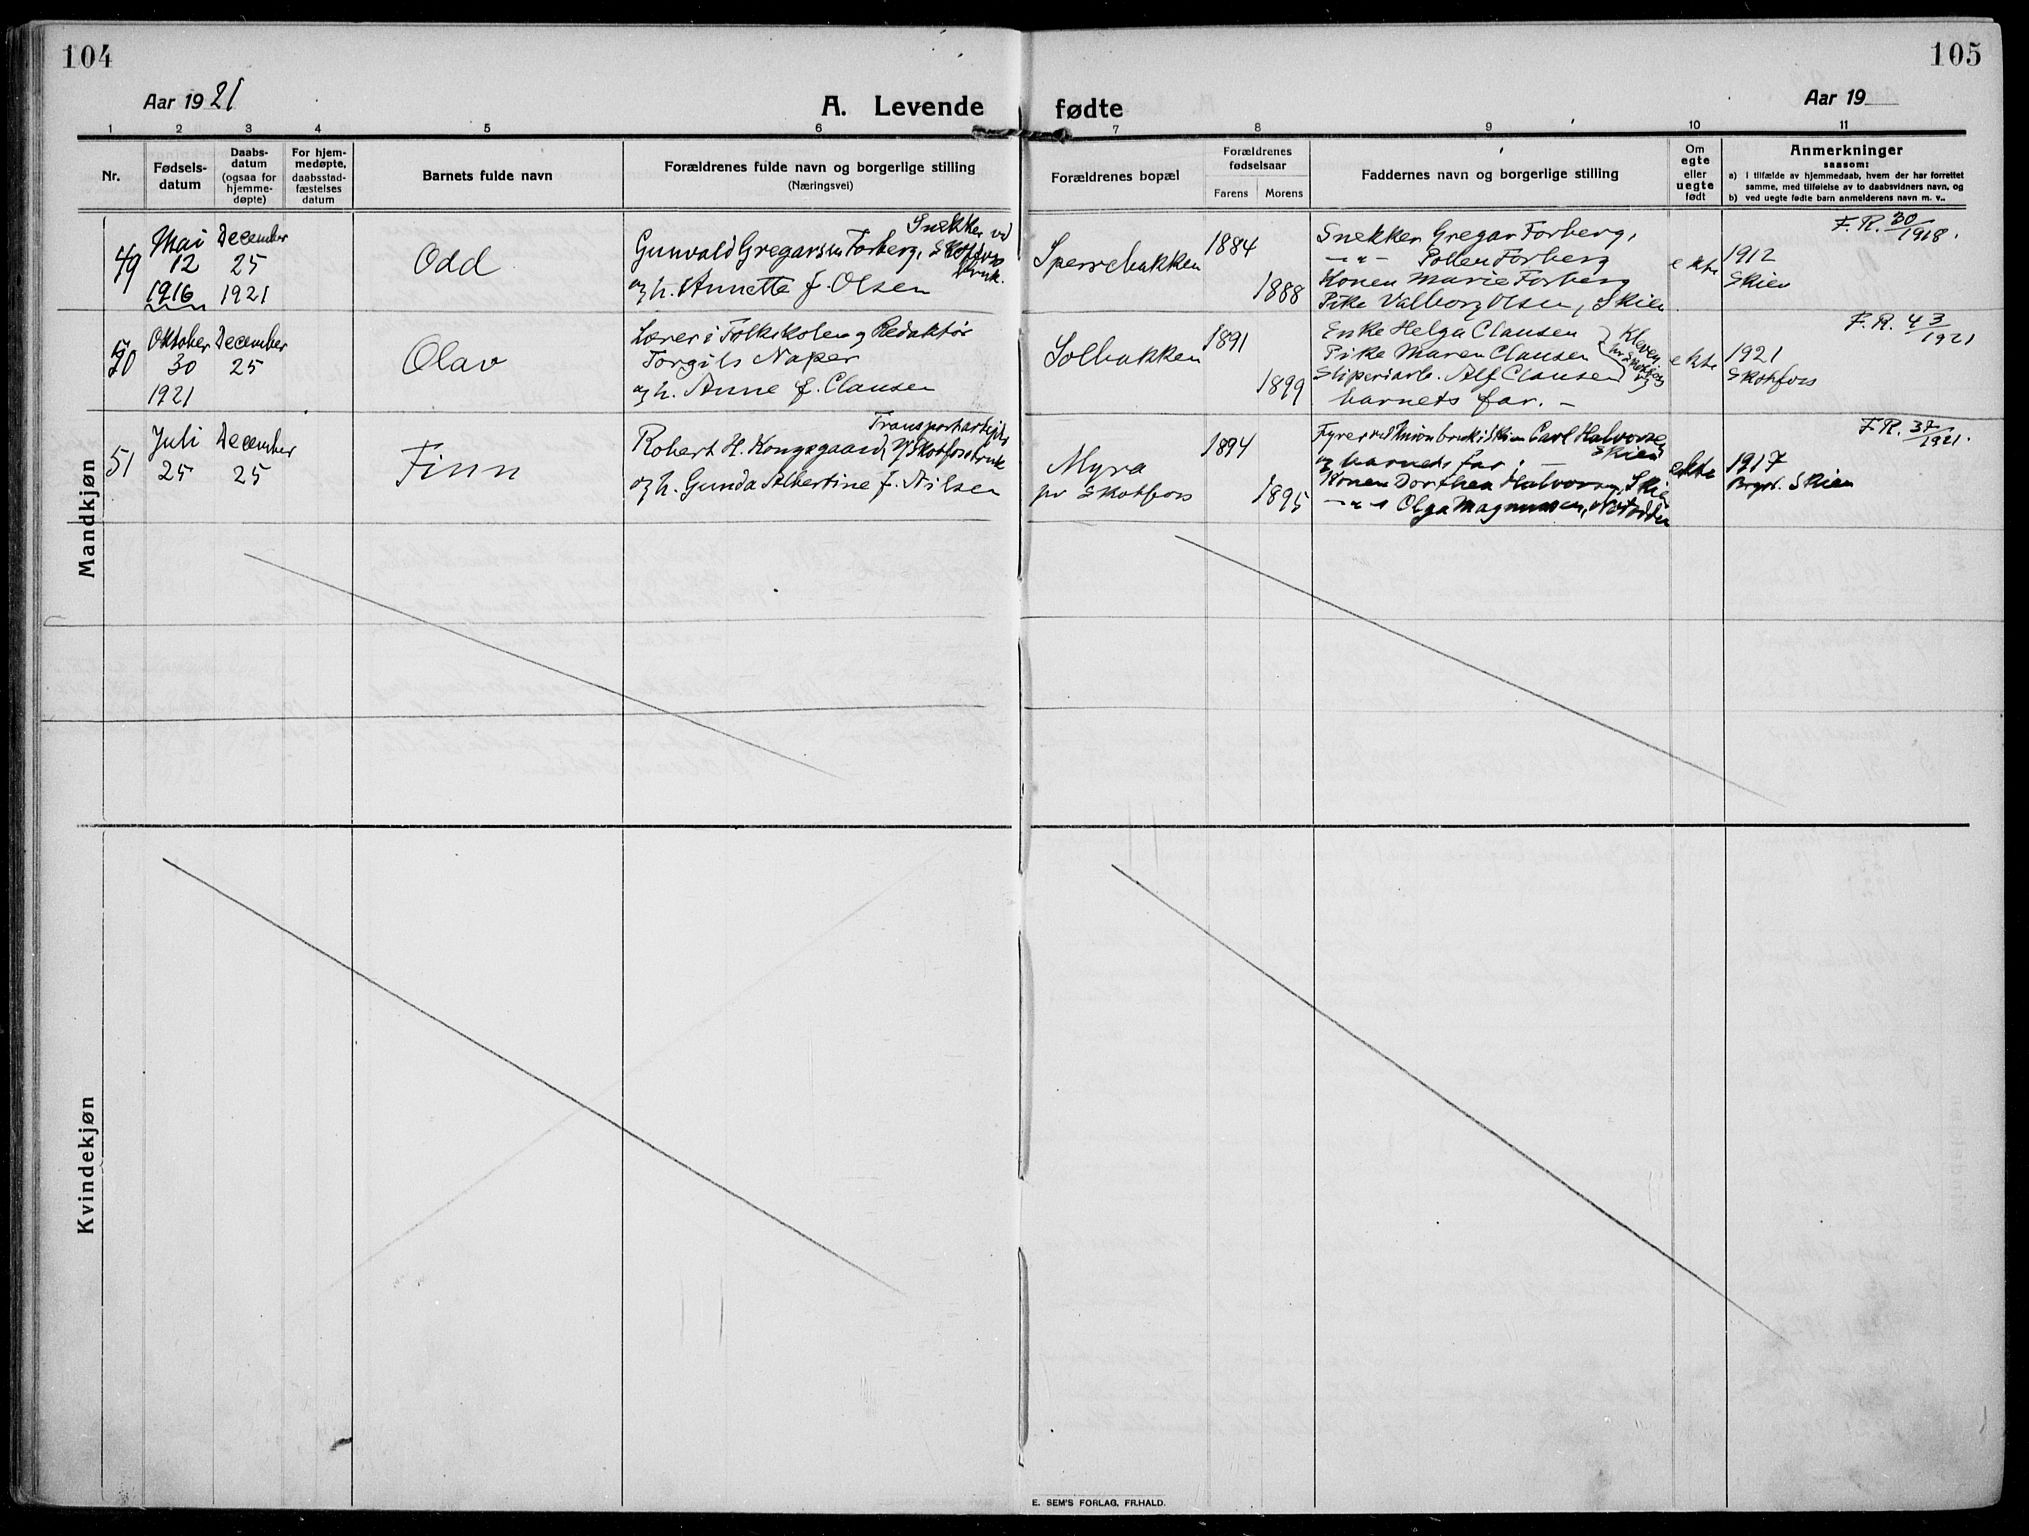 104
Aar 1921
A. Levende
1 2 3 4 5 6
Nr.
Fødsels-
datum
Daabs-
datum
(ogsaa for
hjemme-
døpte)
For hjem-
medøpte,
daabsstad-
fæstelses
datum
Barnets fulde navn
Forældrenes fulde navn og borgerlige stilling
(Næringsvei)
Mandkjøn
49
Mai
12
1916
December
25
1921
Odd
Snekker ved
Gunvald Gregarsen Forberg, Skotfos
bruk.
og h. Annette f. Olsen
50
Oktober
30
1921
December
25
Olav
Lærer i Folkskolen og Redaktør
Torgils Naper
og h. Anne f. Clausen
51
Juli
25
December
25
Finn
Transportarbejder
Robert H. Kongsgaard v/Skotfos bruk
og h. Gunda Albertine f. Nilsen
Kvindekjøn
105
fødte
Aar 19
7 8 9 10 11
Forældrenes bopæl
Forældrenes
fødselsaar
Farens Morens
Faddernes navn og borgerlige stilling
Om
egte
eller
uegte
født
Anmerkninger
saasom:
a) i tilfælde av hjemmedaab, hvem der har forrettet
samme, med tilføielse av to daabsvidners navn, og
b) ved uegte fødte barn anmelderens navn m. v..
Sperrebakken
1884
1888
Snekker Gregar Forberg,
— " — Pollen Forberg
Konen Marie Forberg
Pike Valborg Olsen, Skien
ekte
F. R. 30/1918.
1912
Skien
Solbakken
1891
1899
Enke Helga Clausen
Pike Maren Clausen
Sliperiarb. Alf Clausen
Kleven
pr Skotfos
og
barnets far. —
ekte
F. R. 43/1921
1921
Skotfos
Myra
pr Skotfos
1894
1895
Fyrer ved Union bruk i Skien Carl Halvorsen
Skien
og barnets far. —
Konen Dorthea Halvorsen, Skien
— " — Olga Magnussen, Notodden
ekte
F. R. 37/1921.
1917
Brgvl. Skien
E. SEM'S FORLAG, FR.HALD.